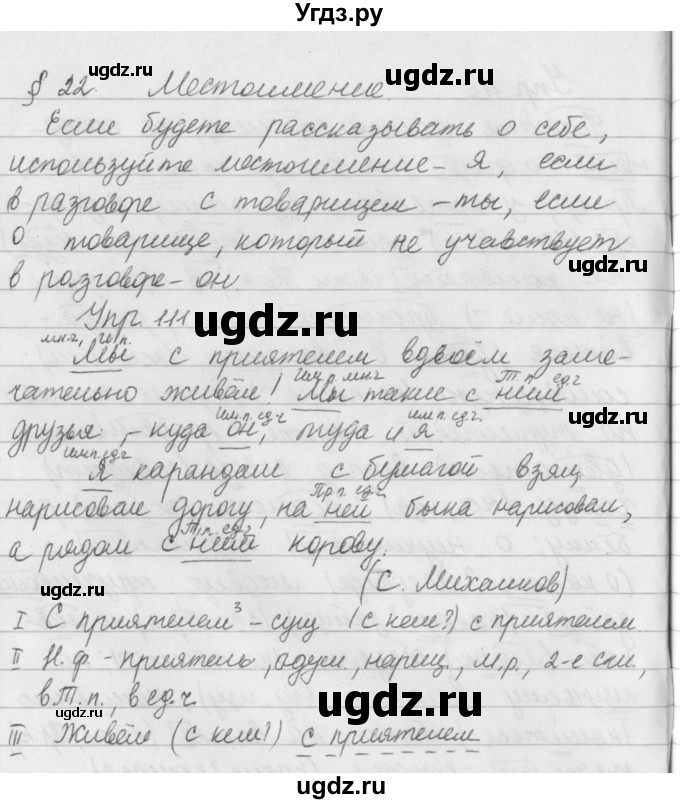 Угдз.ру
§ 22. Местоимение.
Если будете рассказывать о себе,
используйте местоимение - Я, если
в разговоре с товарищем - ты, если
о товарище, который не учавствует
в разговоре - он.
Упр. 111
мн.ч., им.п.
Мы с приятелем вдвоём заме-
им.п. мн.ч. Т.п. ед.ч.
чательно живём! Мы такие с ним
им.п. ед.ч. им.п. ед.ч.
друзья - куда он, туда и я.
им.п. ед.ч.
Я карандаш с бумагой взял,
Пр.п. ед.ч.
нарисовал дорогу, на ней быка нарисовал,
Т.п. ед.ч.
а рядом с ним корову.
(С. Михалков)
I С приятелем³ - сущ. (с кем?) с приятелем.
II Н.ф. - приятель, одуш., нариц., м.р., 2-е скл.,
в Т.п., в ед.ч.
III Живём (с кем?) с приятелем
ugdz.ru
ugdz.ru
ugdz.ru
ugdz.ru
ugdz.ru
ugdz.ru
ugdz.ru
ugdz.ru
ugdz.ru
ugdz.ru
ugdz.ru
ugdz.ru